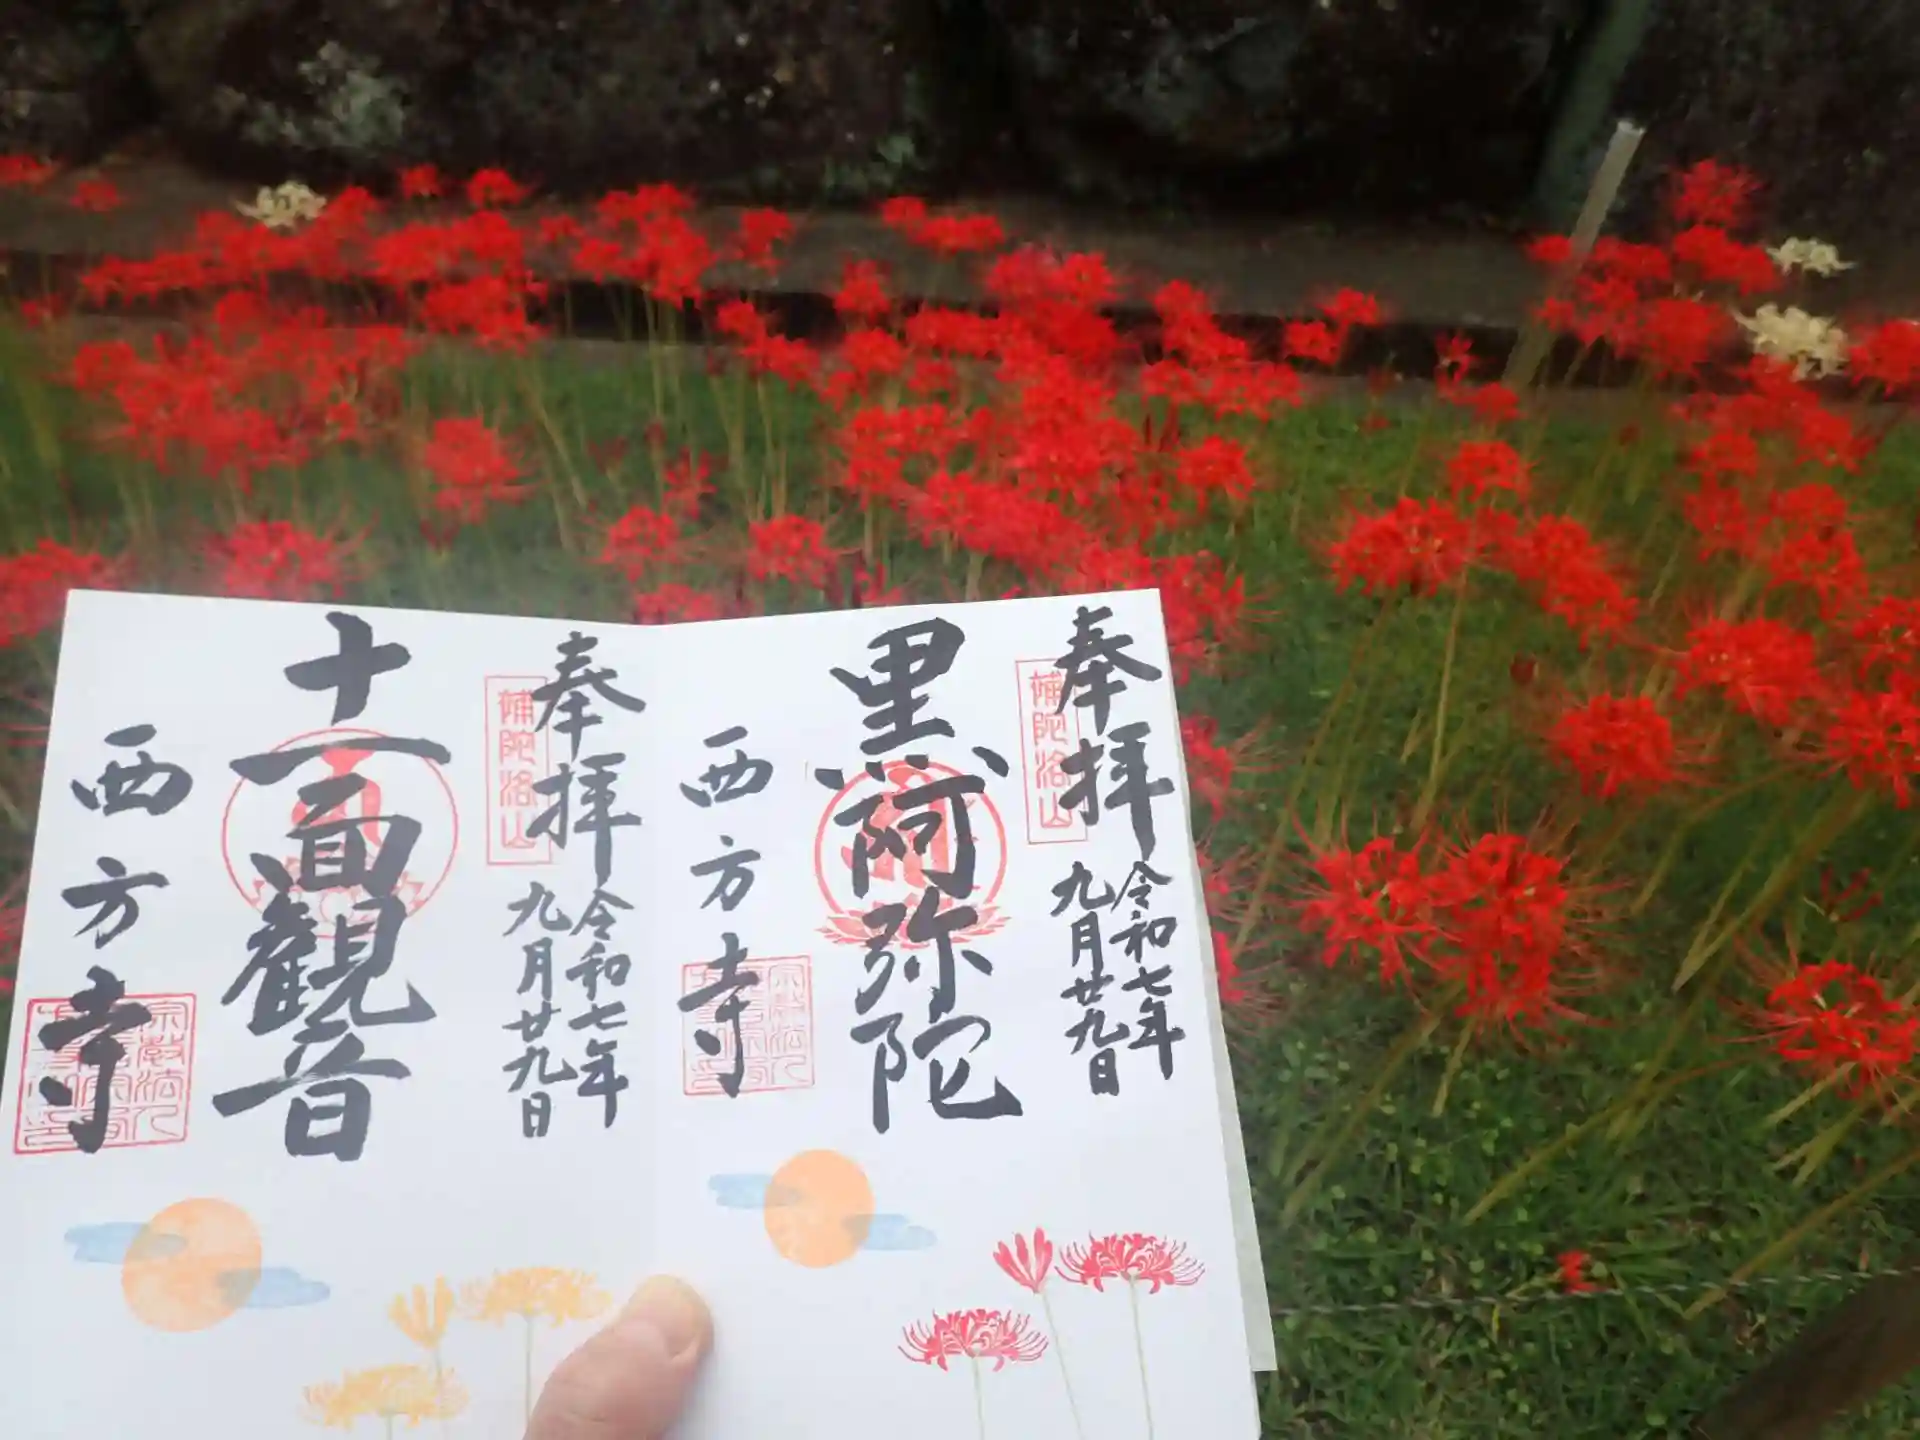 奉拝
補陀洛山
令和七年
九月廿九日
黒阿弥陀
西方寺
奉拝
補陀洛山
令和七年
九月廿九日
十一面観音
西方寺
宗教法人